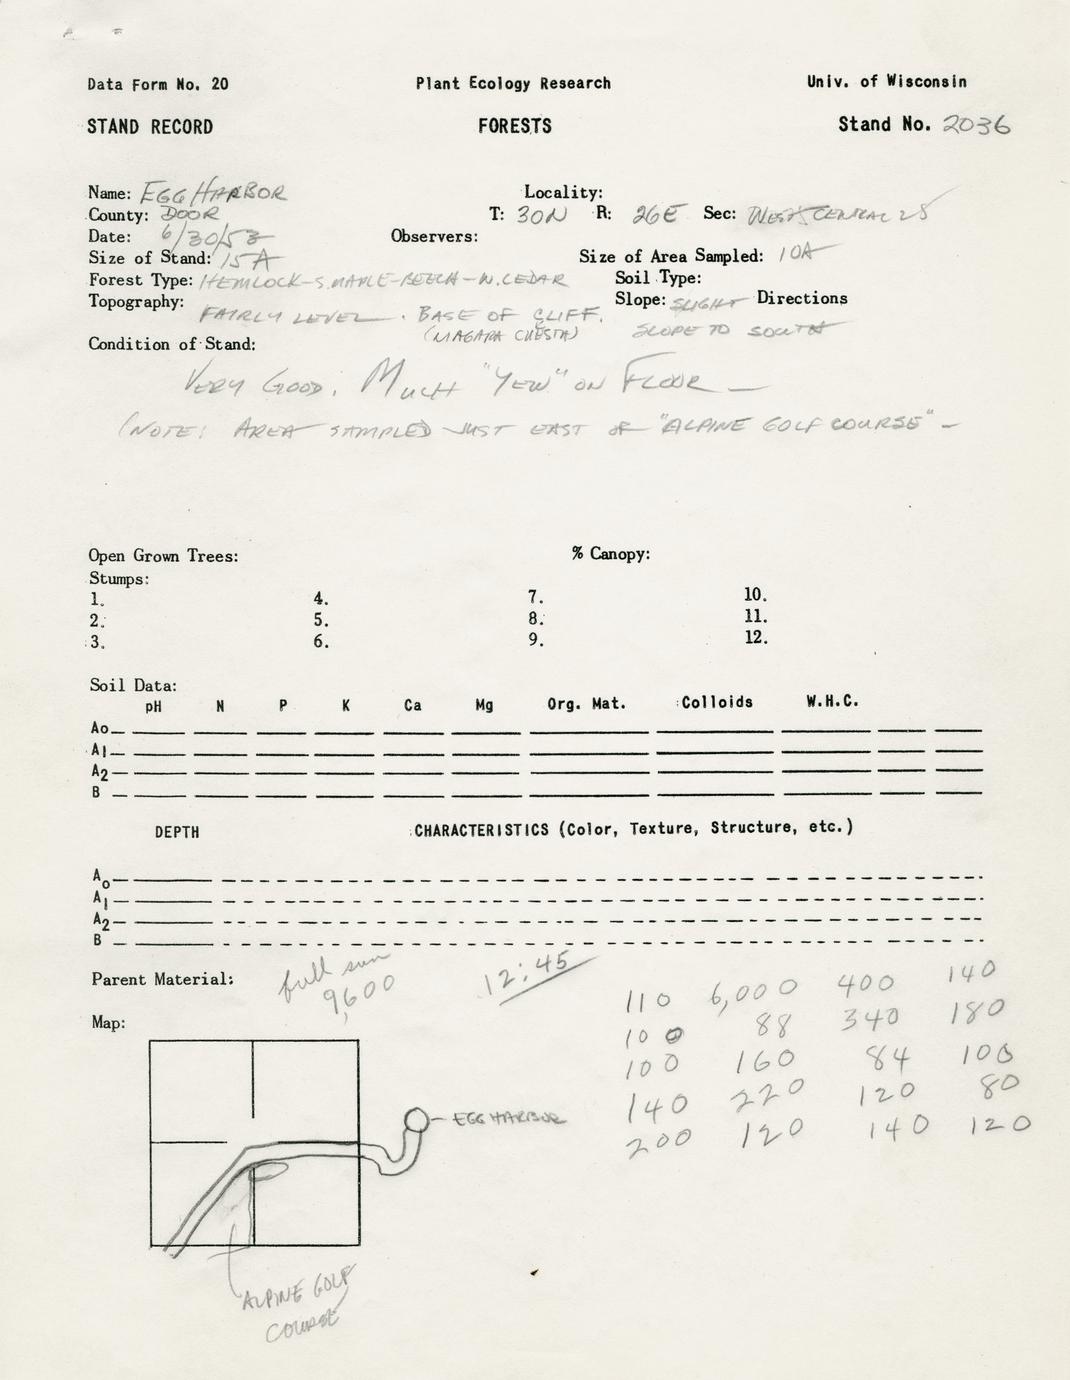 Data Form No. 20 Plant Ecology Research Univ. of Wisconsin
STAND RECORD FORESTS Stand No. 2036
Name: EGG HARBOR Locality:
County: DOOR T: 30N R: 26E Sec: WEST CENTRAL 25
Date: 6/30/53 Observers:
Size of Stand: 15A Size of Area Sampled: 10A
Forest Type: HEMLOCK-S.MAPLE-BEECH-W.CEDAR Soil Type:
Topography: FAIRLY LEVEL. BASE OF CLIFF. Slope: SLIGHT Directions
(NIAGARA CUESTA) SLOPE TO SOUTH
Condition of Stand:
VERY GOOD. MUCH "YEW" ON FLOOR —
(NOTE: AREA SAMPLED JUST EAST OF "ALPINE GOLF COURSE" —
Open Grown Trees: % Canopy:
Stumps:
1. 4. 7. 10.
2. 5. 8. 11.
3. 6. 9. 12.
Soil Data:
pH N P K Ca Mg Org. Mat. Colloids W.H.C.
Ao
A1
A2
B
DEPTH CHARACTERISTICS (Color, Texture, Structure, etc.)
Ao
A1
A2
B
Parent Material: full sun 12:45
9,600
110 6,000 400 140
100 88 340 180
100 160 84 100
140 220 120 80
200 120 140 120
Map:
EGG HARBOR
ALPINE GOLF
COURSE